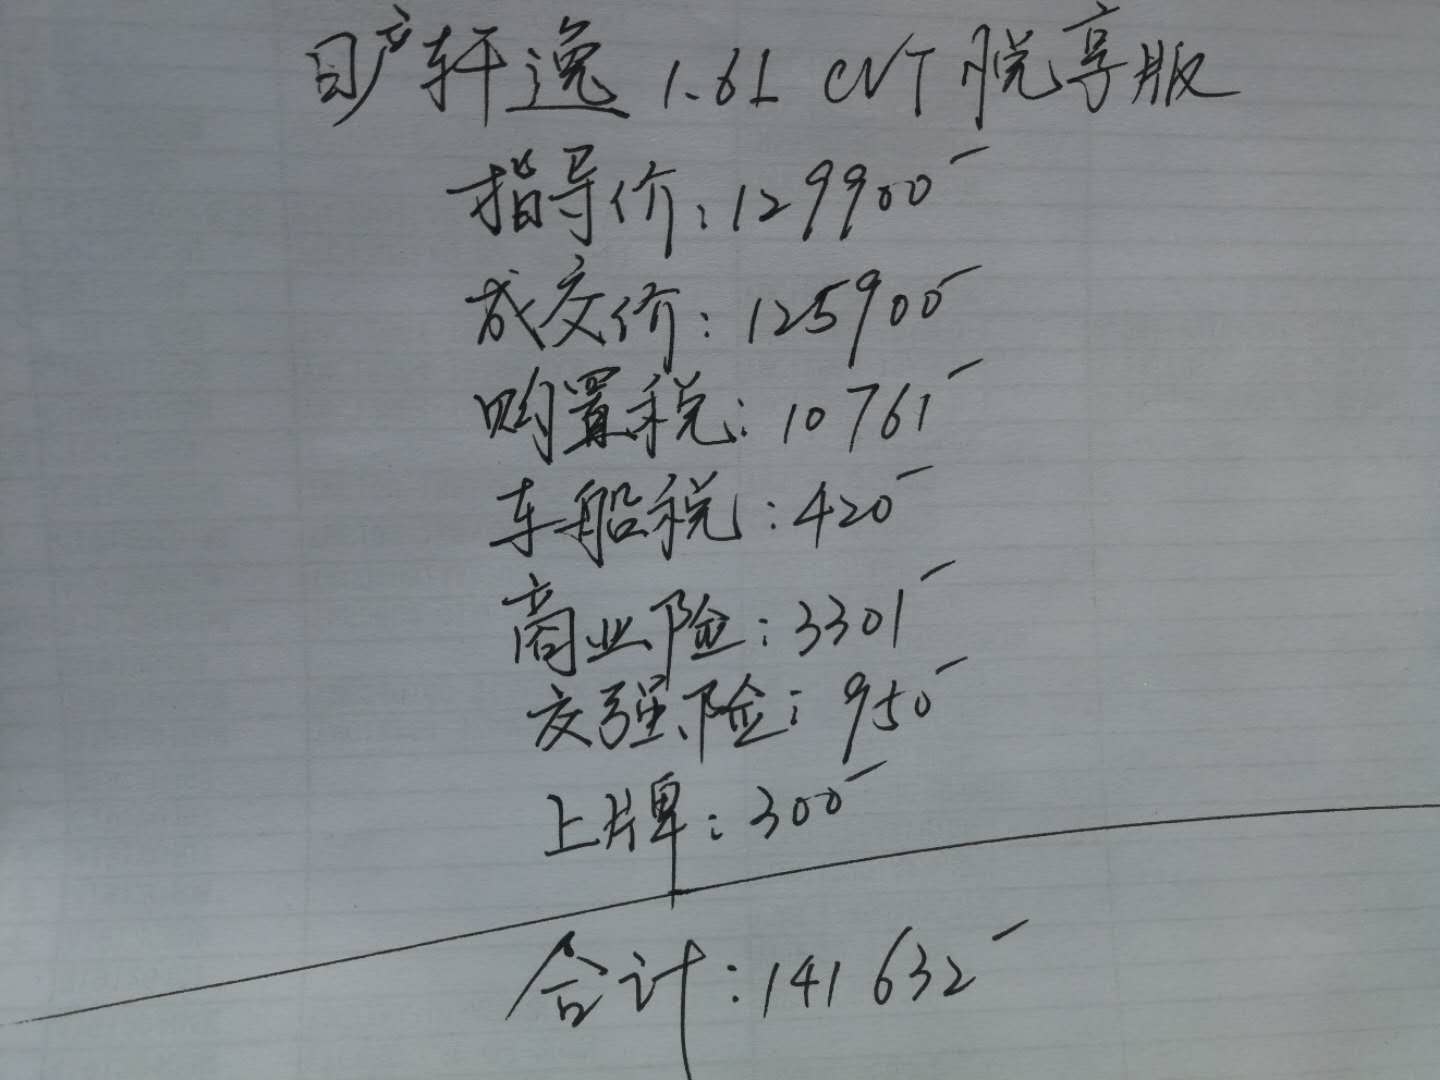 日产轩逸 1.6L CVT 悦享版
指导价:129900-
成交价:125900-
购置税:10761-
车船税:420-
商业险:3301-
交强险:950-
上牌:300-
合计:141632-